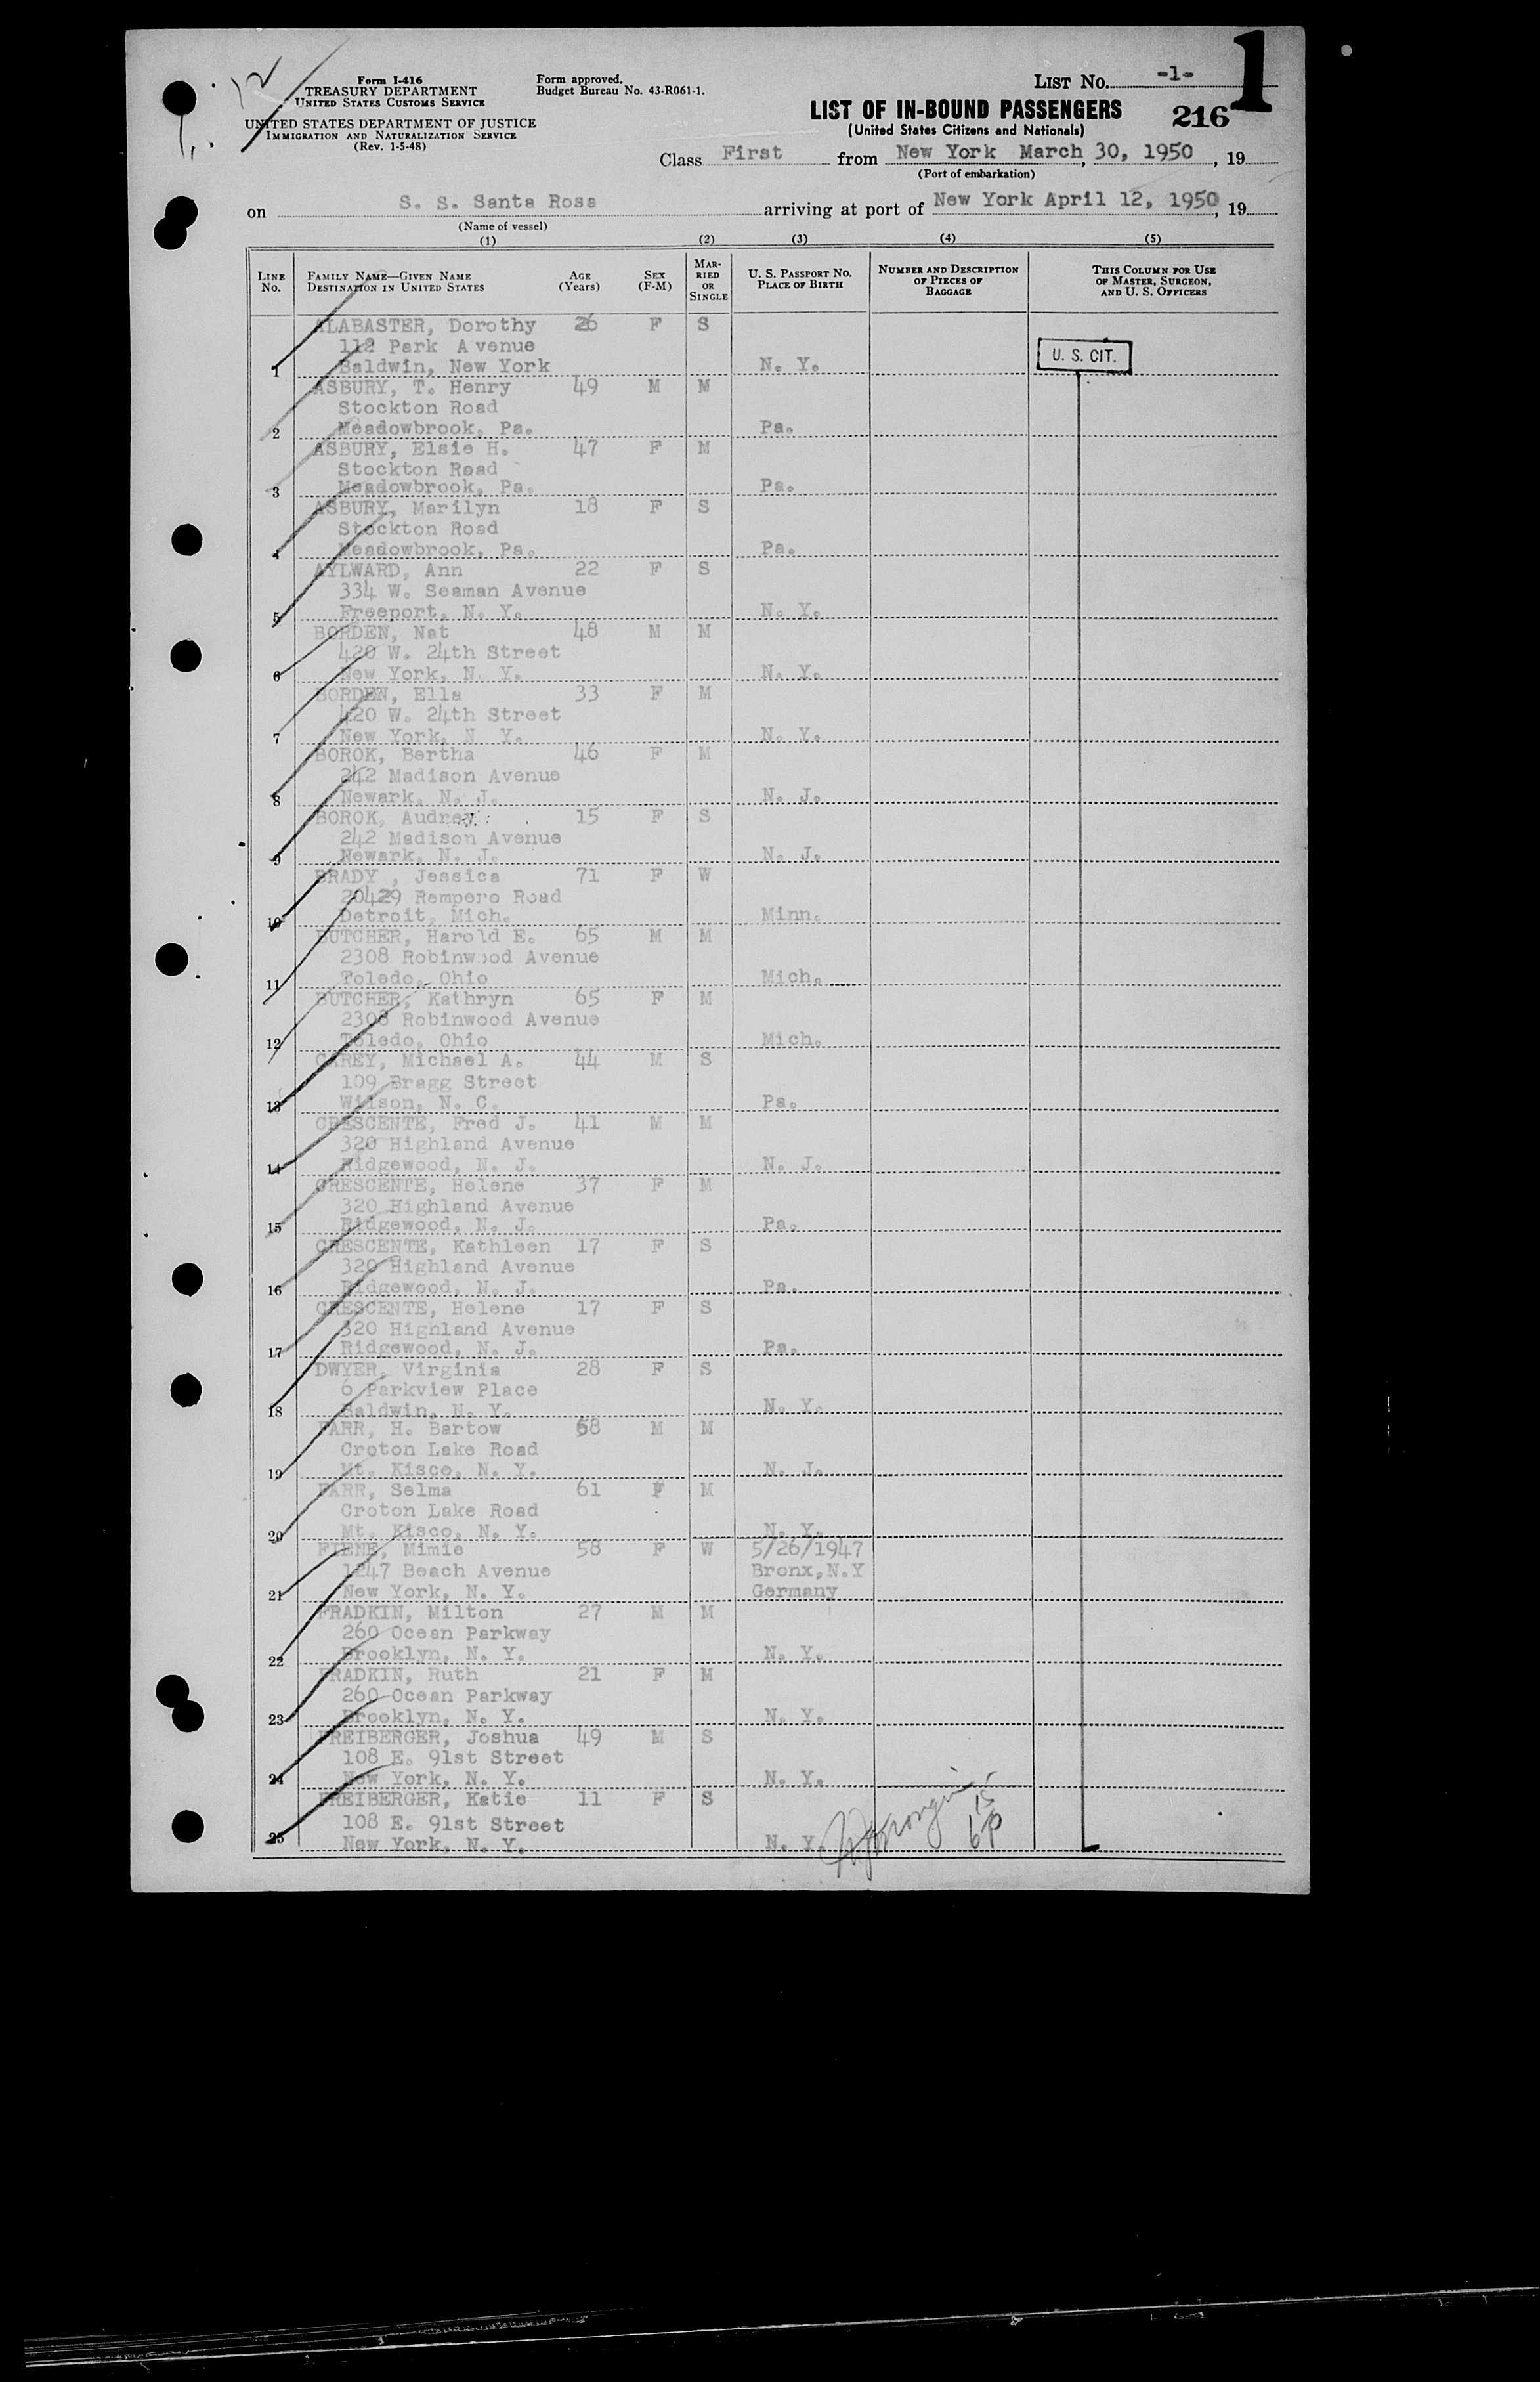 12
Form I-416
TREASURY DEPARTMENT
UNITED STATES CUSTOMS SERVICE
UNITED STATES DEPARTMENT OF JUSTICE
IMMIGRATION AND NATURALIZATION SERVICE
(Rev. 1-5-48)
Form approved.
Budget Bureau No. 43-R061-1.
LIST NO. -1-
1
LIST OF IN-BOUND PASSENGERS
(United States Citizens and Nationals)
216
Class First from New York March 30, 1950, 19
(Port of embarkation)
on S. S. Santa Rosa arriving at port of New York April 12, 1950, 19
(Name of vessel)
(1) (2) (3) (4) (5)
LINE No. FAMILY NAME—GIVEN NAME DESTINATION IN UNITED STATES AGE (Years) SEX (F-M) MARRIED OR SINGLE U. S. PASSPORT NO. PLACE OF BIRTH NUMBER AND DESCRIPTION OF PIECES OF BAGGAGE THIS COLUMN FOR USE OF MASTER, SURGEON, AND U. S. OFFICERS
ALABASTER, Dorothy 26 F S
112 Park Avenue
1 Baldwin, New York N. Y. U. S. CIT.
ASBURY, T. Henry 49 M M
Stockton Road
2 Meadowbrook, Pa. Pa.
ASBURY, Elsie H. 47 F M
Stockton Road
3 Meadowbrook, Pa. Pa.
ASBURY, Marilyn 18 F S
Stockton Road
4 Meadowbrook, Pa. Pa.
AYLWARD, Ann 22 F S
334 W. Seaman Avenue
5 Freeport, N. Y. N. Y.
BORDEN, Nat 48 M M
420 W. 24th Street
6 New York, N. Y. N. Y.
BORDEN, Ella 33 F M
420 W. 24th Street
7 New York, N. Y. N. Y.
BOROK, Bertha 46 F M
242 Madison Avenue
8 Newark, N. J. N. J.
BOROK, Audrey 15 F S
242 Madison Avenue
9 Newark, N. J. N. J.
BRADY , Jessica 71 F W
20429 Rempero Road
10 Detroit, Mich. Minn.
BUTCHER, Harold E. 65 M M
2308 Robinwood Avenue
11 Toledo, Ohio Mich.
BUTCHER, Kathryn 65 F M
2308 Robinwood Avenue
12 Toledo, Ohio Mich.
CAREY, Michael A. 44 M S
109 Bragg Street
13 Wilson, N. C. Pa.
CRESCENTE, Fred J. 41 M M
320 Highland Avenue
14 Ridgewood, N. J. N. J.
CRESCENTE, Helene 37 F M
320 Highland Avenue
15 Ridgewood, N. J. Pa.
CRESCENTE, Kathleen 17 F S
320 Highland Avenue
16 Ridgewood, N. J. Pa.
CRESCENTE, Helene 17 F S
320 Highland Avenue
17 Ridgewood, N. J. Pa.
DWYER, Virginia 28 F S
6 Parkview Place
18 Baldwin, N. Y. N. Y.
FARR, H. Bartow 68 M M
Croton Lake Road
19 Mt. Kisco, N. Y. N. J.
FARR, Selma 61 F M
Croton Lake Road
20 Mt. Kisco, N. Y. N. Y.
FIENE, Mimie 58 F W 5/26/1947
1247 Beach Avenue Bronx,N.Y
21 New York, N. Y. Germany
FRADKIN, Milton 27 M M
260 Ocean Parkway
22 Brooklyn, N. Y. N. Y.
FRADKIN, Ruth 21 F M
260 Ocean Parkway
23 Brooklyn, N. Y. N. Y.
FREIBERGER, Joshua 49 M S
108 E. 91st Street
24 New York, N. Y. N. Y.
FREIBERGER, Katie 11 F S
108 E. 91st Street
25 New York, N. Y. N. Y.